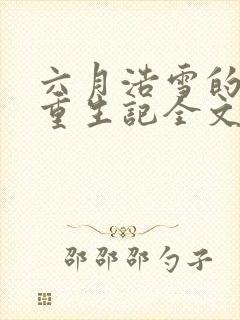 六月浩雪的
重生記全文
邵邵邵勺子